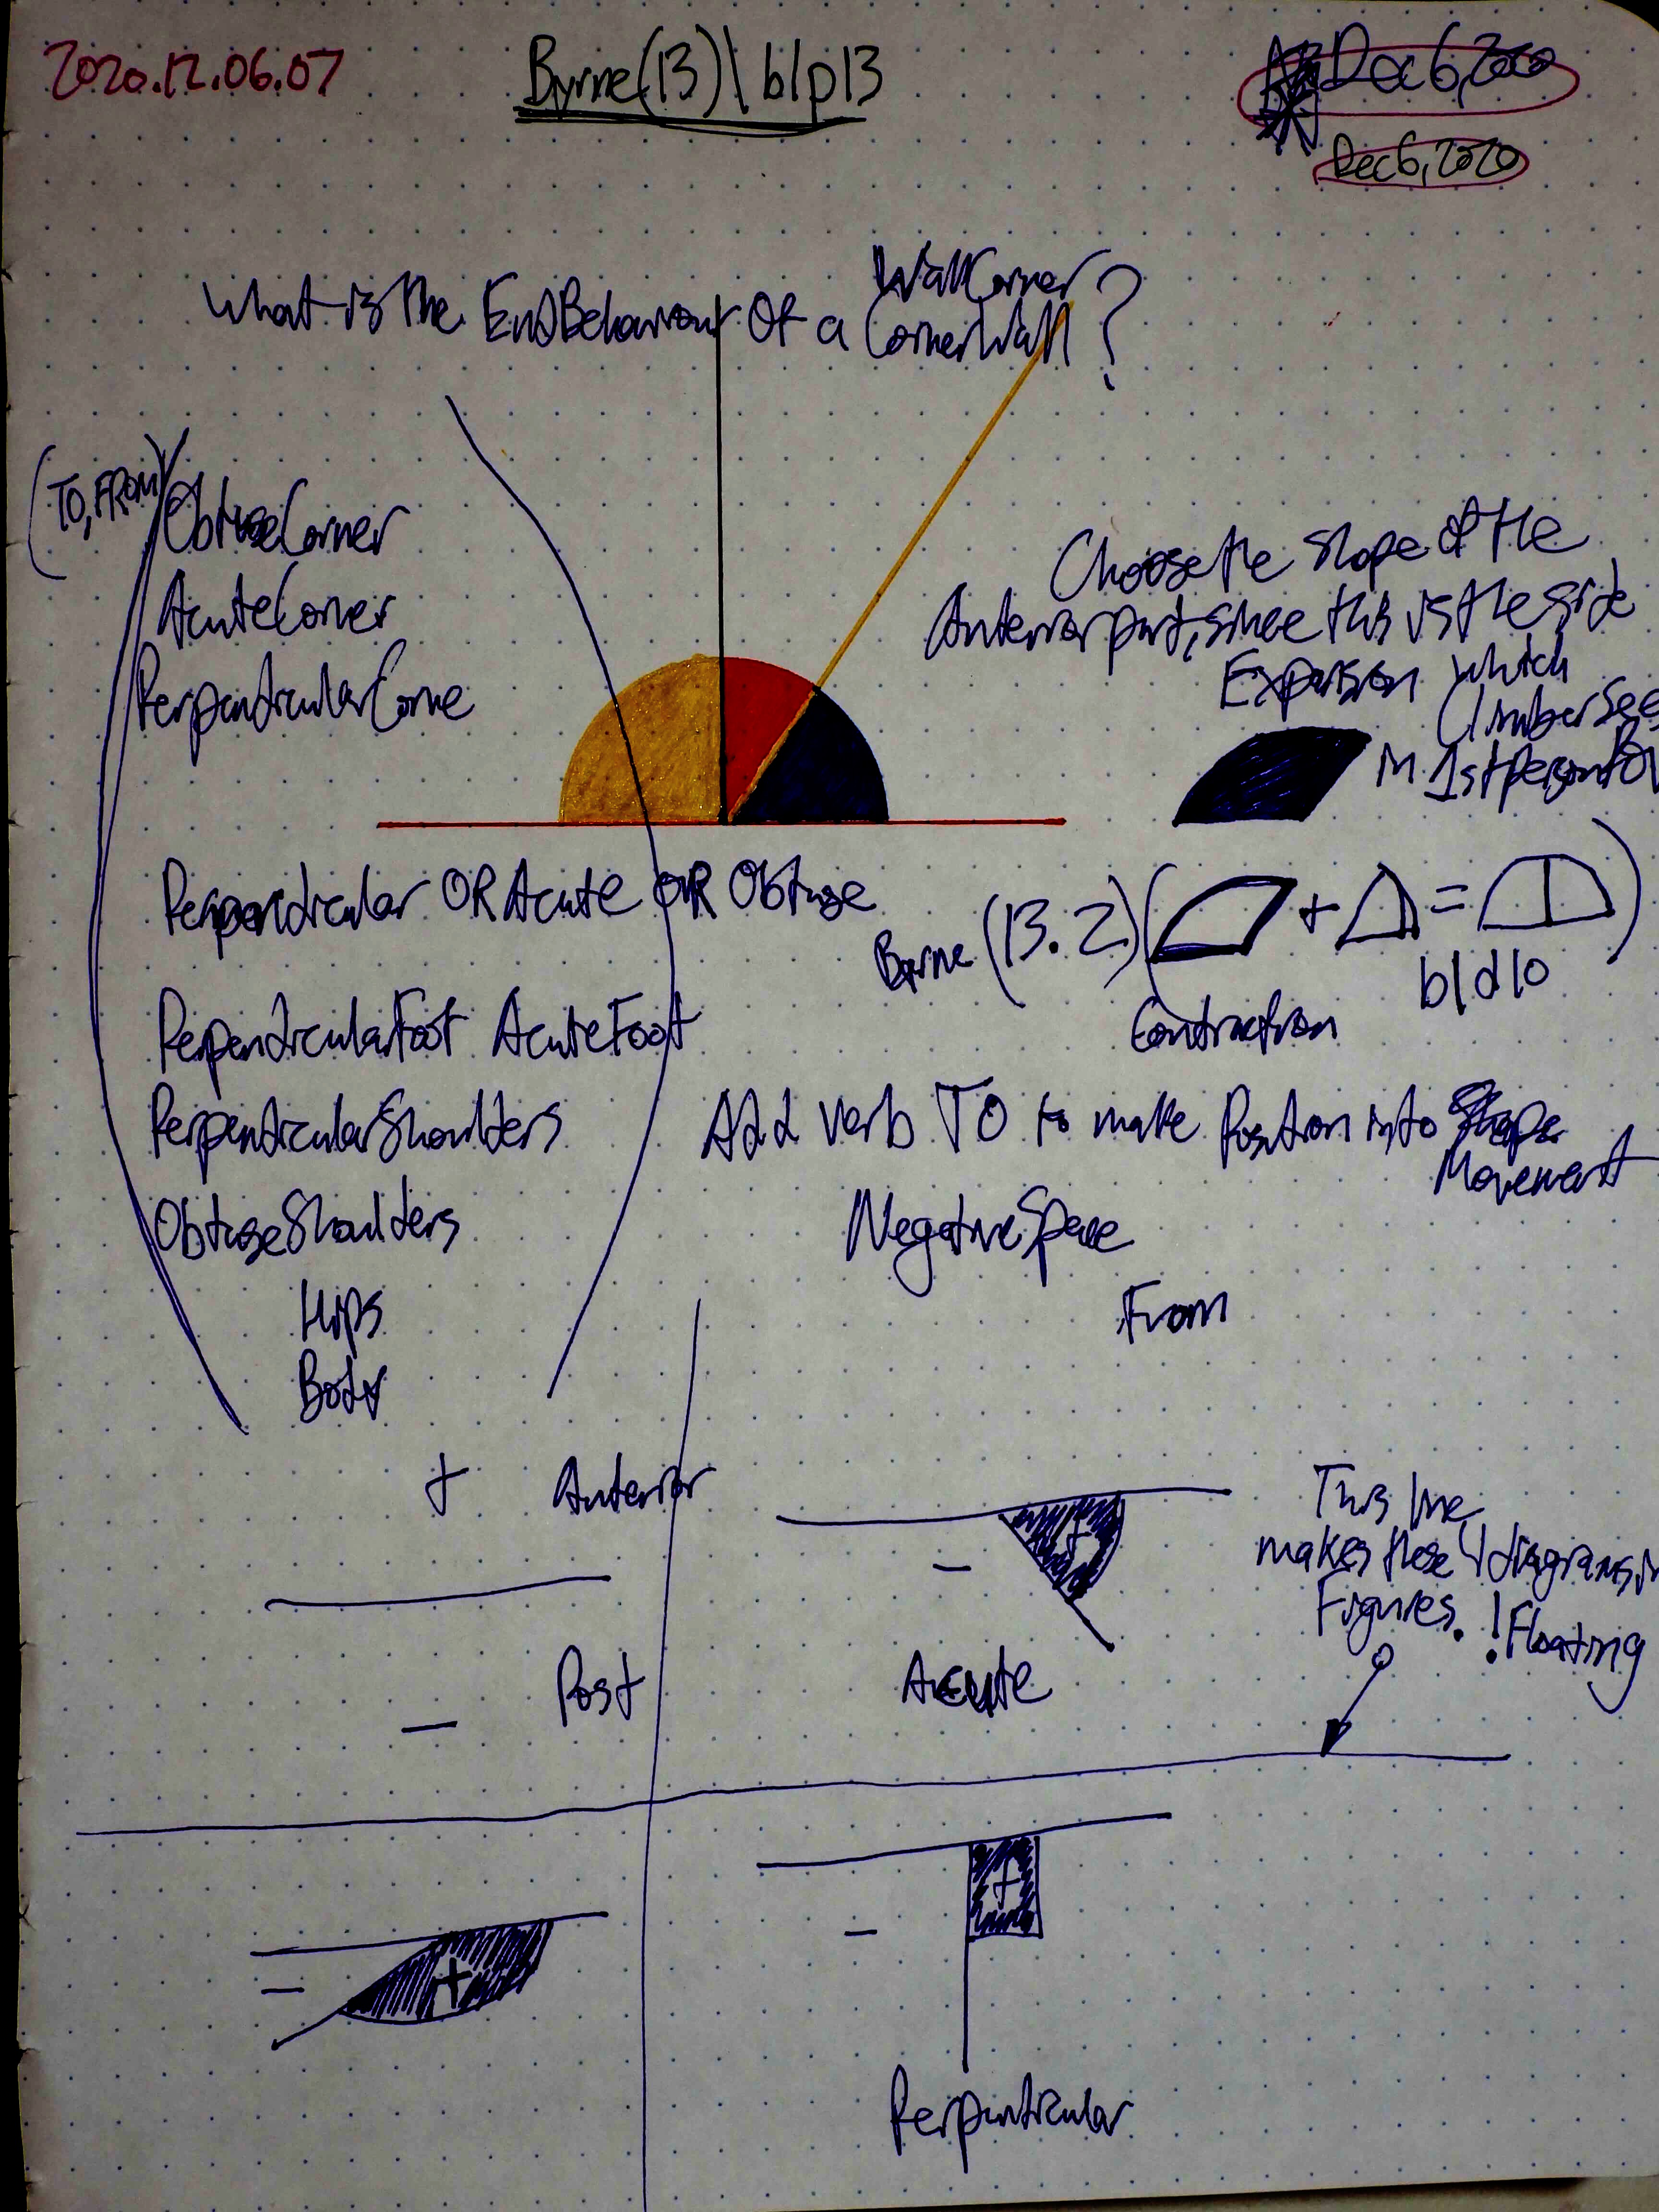 2020.12.06.07
Byrne(13)\b1p13
Dec6,2020
Dec6,2020
WallCorner
What is the EndBehaviour Of a CornerWall?
(TO,FROM)
ObtuseCorner
AcuteCorner
PerpendicularCorne
Choose the slope of the
Anterior part, since this is the side
Expansion which
Climber sees
in 1st person POV
Perpendicular OR Acute OR Obtuse
Byrne (13.2)( + = )
b1d10
Contraction
PerpendicularFoot AcuteFoot
PerpendicularShoulders
Add verb TO to make Position into Shape
Movement
ObtuseShoulders
NegativeSpace
Hips
From
Body
+ Anterior
− Post
− +
Acute
This line
makes these 4 diagrams, N
Figures. !Floating
− +
− +
Perpendicular